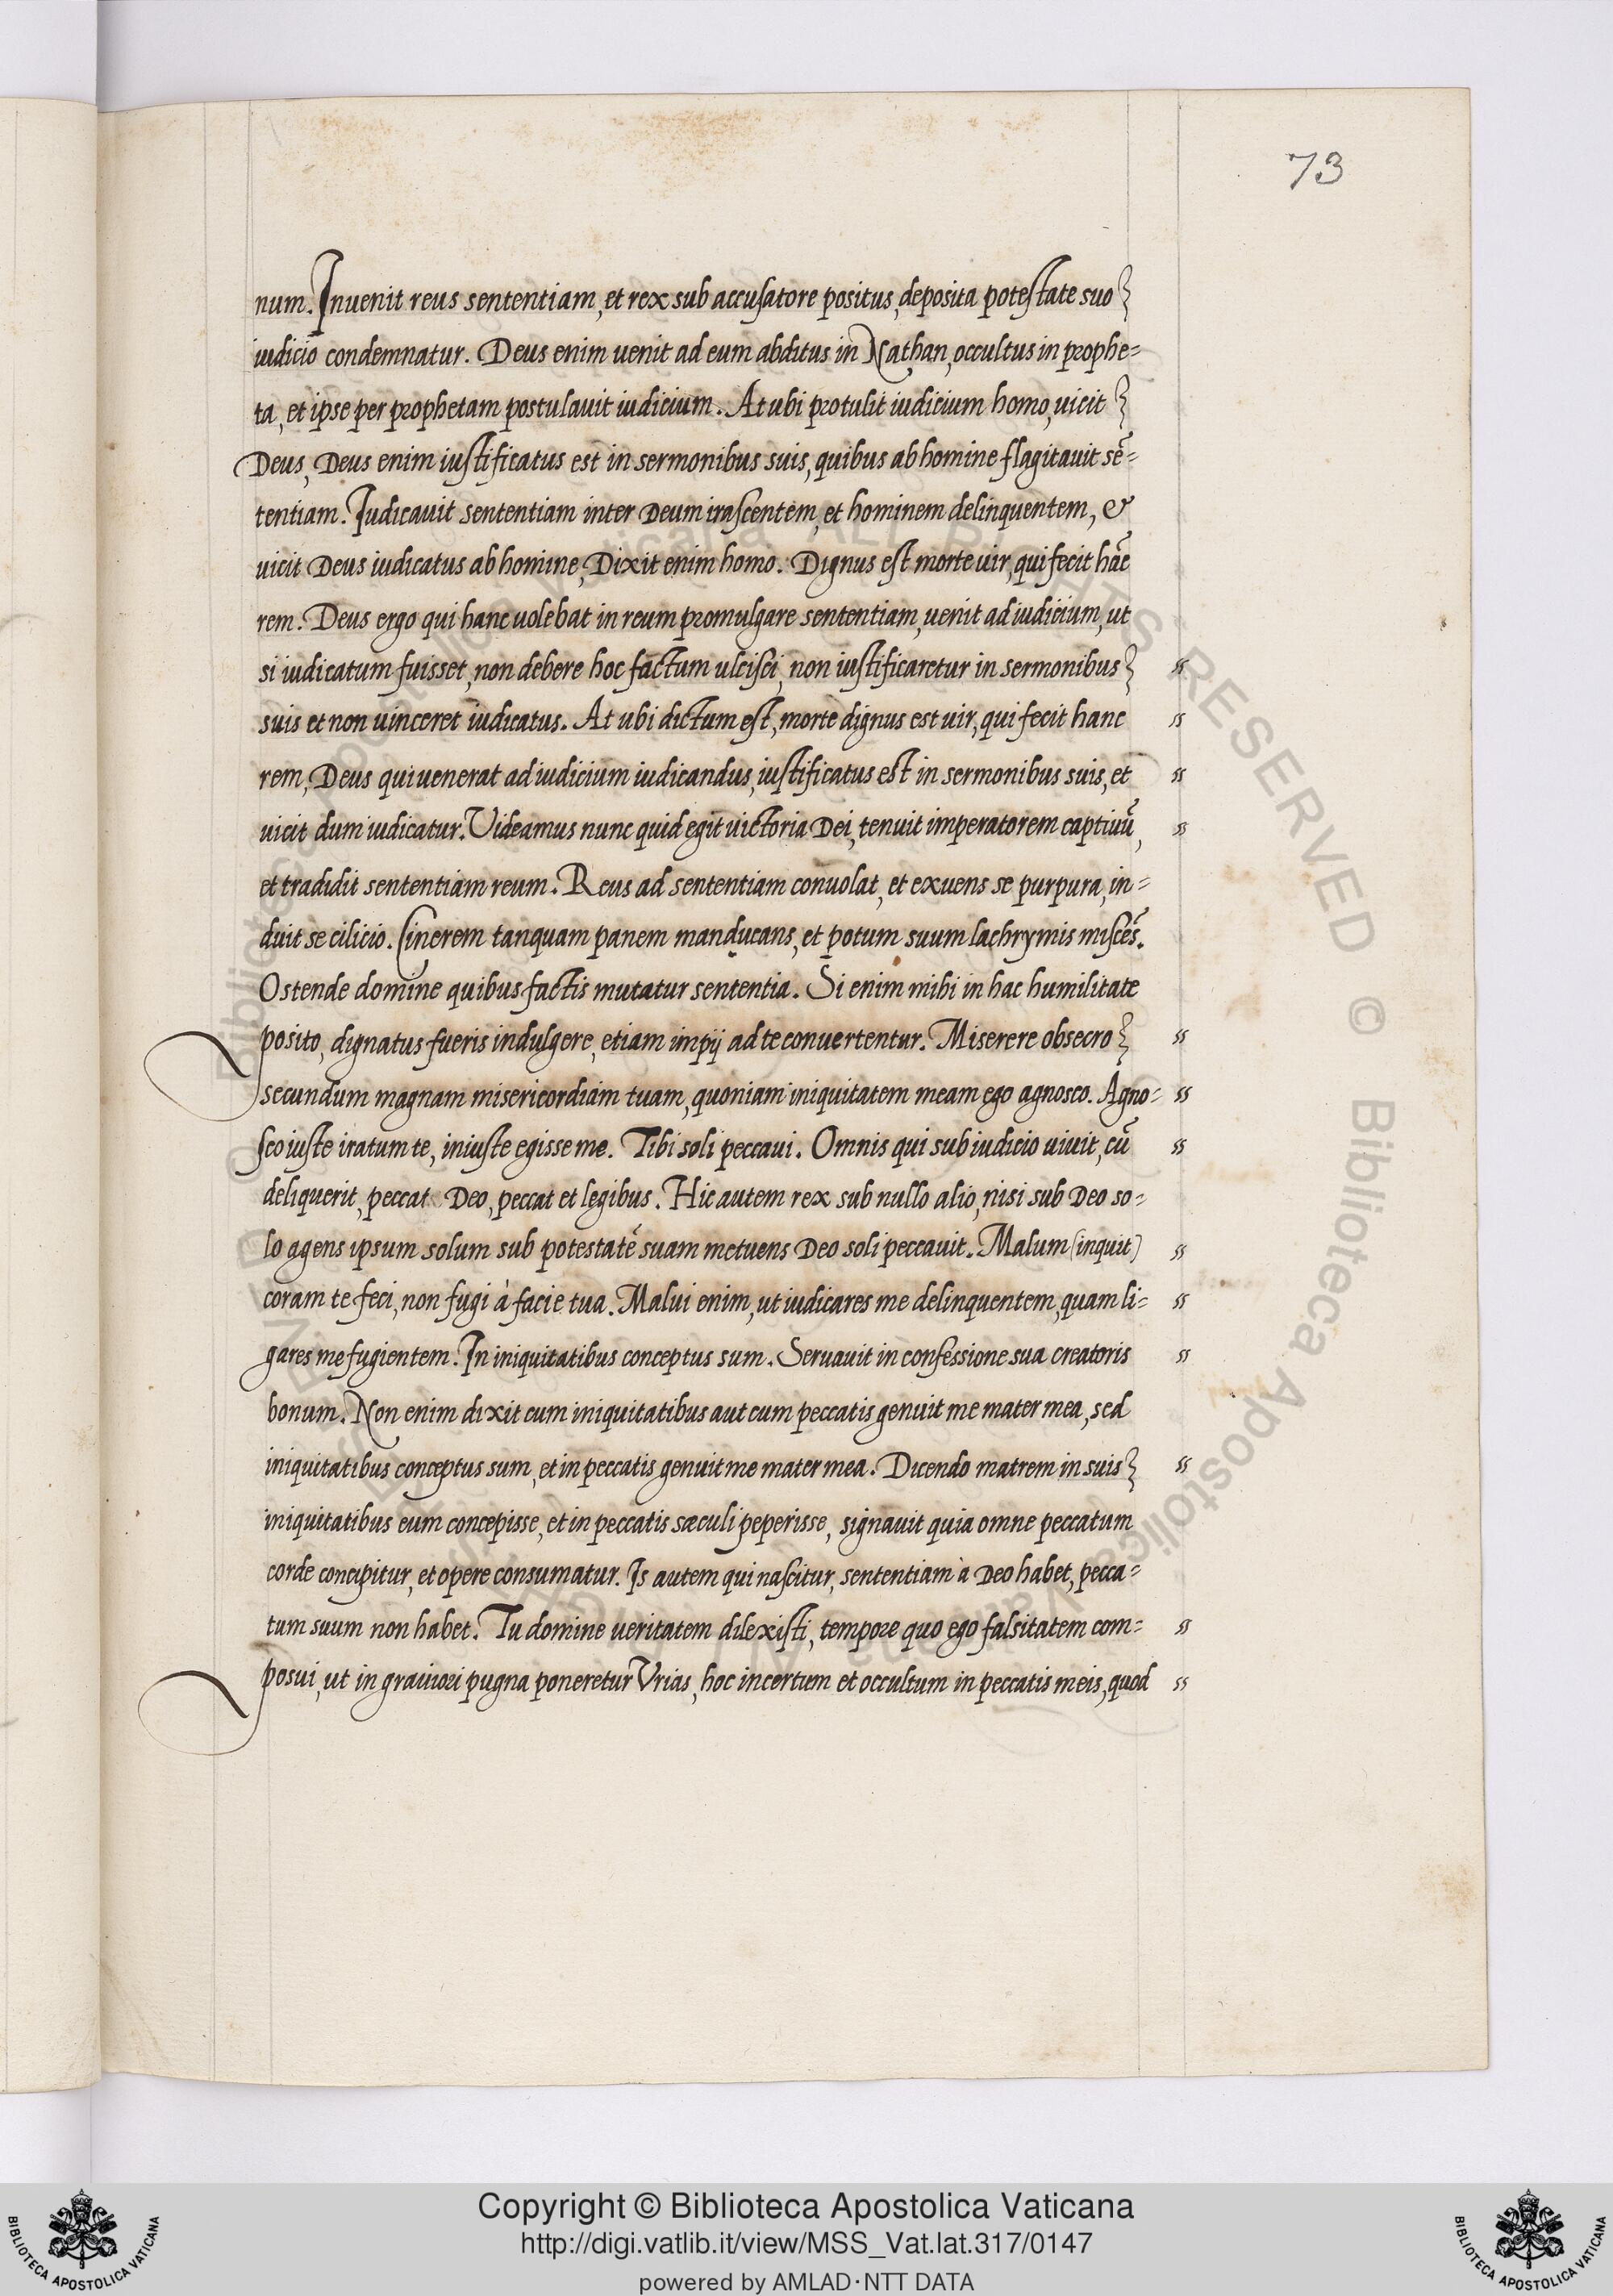 73
num. Inuenit reus sententiam, et rex sub accusatore positus, deposita potestate suo
iudicio condemnatur. Deus enim uenit ad eum abditus in Nathan, occultus in prophe=
ta, et ipse per prophetam postulauit iudicium. At ubi protulit iudicium homo, uicit
Deus, Deus enim iustificatus est in sermonibus suis, quibus ab homine flagitauit sē=
tentiam. Iudicauit sententiam inter Deum irascentem, et hominem delinquentem, &
uicit Deus iudicatus ab homine, Dixit enim homo. Dignus est morte uir, qui fecit hāc
rem. Deus ergo qui hanc uolebat in reum promulgare sententiam, uenit ad iudicium, ut
si iudicatum fuisset, non debere hoc factum ulcisci, non iustificaretur in sermonibus "
suis et non uinceret iudicatus. At ubi dictum est, morte dignus est uir, qui fecit hanc "
rem, Deus qui uenerat ad iudicium iudicandus, iustificatus est in sermonibus suis, et "
uicit dum iudicatur. Videamus nunc quid egit uictoria Dei, tenuit imperatorem captiuū, "
et tradidit sententiam reum. Reus ad sententiam conuolat, et exuens se purpura, in=
duit se cilicio. Cinerem tanquam panem manducans, et potum suum lachrymis miscēs.
Ostende domine quibus factis mutatur sententia. Si enim mihi in hac humilitate
posito, dignatus fueris indulgere, etiam impij ad te conuertentur. Miserere obsecro "
secundum magnam misericordiam tuam, quoniam iniquitatem meam ego agnosco. Agno= "
sco iuste iratum te, iniuste egisse me. Tibi soli peccaui. Omnis qui sub iudicio uiuit, cū "
deliquerit, peccat Deo, peccat et legibus. Hic autem rex sub nullo alio, nisi sub Deo so=
lo agens ipsum solum sub potestatē suam metuens Deo soli peccauit. Malum (inquit) "
coram te feci, non fugi à facie tua. Malui enim, ut iudicares me delinquentem, quam li= "
gares me fugientem. In iniquitatibus conceptus sum. Seruauit in confessione sua creatoris "
bonum. Non enim dixit cum iniquitatibus aut cum peccatis genuit me mater mea, sed
iniquitatibus conceptus sum, et in peccatis genuit me mater mea. Dicendo matrem in suis "
iniquitatibus eum concepisse, et in peccatis sæculi peperisse, signauit quia omne peccatum
corde concipitur, et opere consumatur. Is autem qui nascitur, sententiam à Deo habet, pecca=
tum suum non habet. Tu domine ueritatem dilexisti, tempore quo ego falsitatem com= "
posui, ut in grauiori pugna poneretur Vrias, hoc incertum et occultum in peccatis meis, quod "
Copyright © Biblioteca Apostolica Vaticana
http://digi.vatlib.it/view/MSS_Vat.lat.317/0147
powered by AMLAD·NTT DATA
BIBLIOTECA APOSTOLICA VATICANA
BIBLIOTECA APOSTOLICA VATICANA